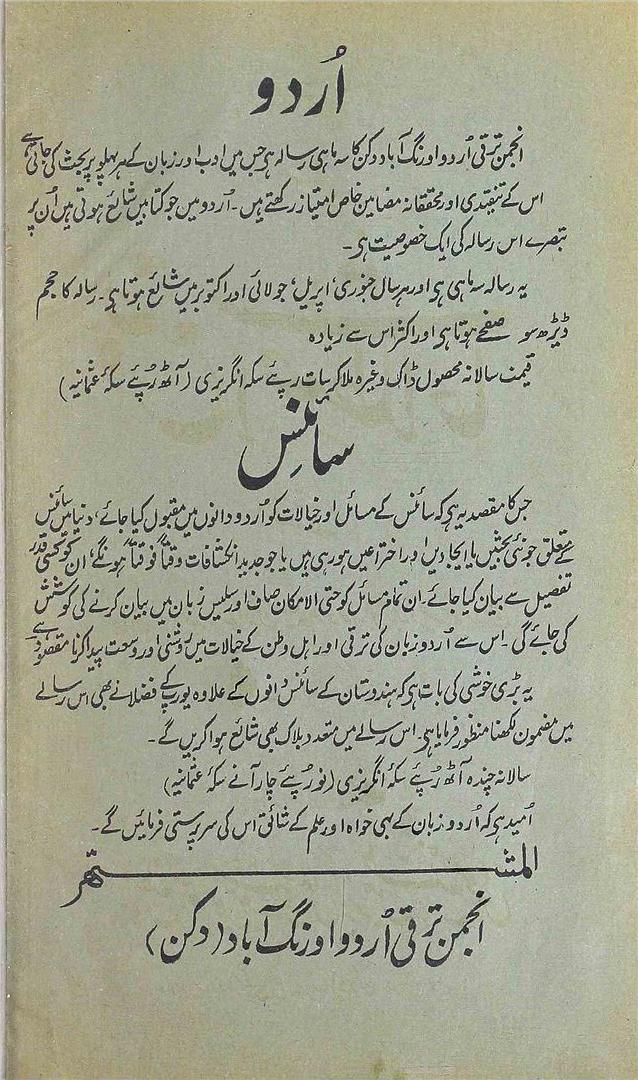 اُردو
انجمن ترقی اُردو اورنگ آباد دکن کا سہ ماہی رسالہ ہر جس میں ادب اور زبان کے ہر پہلو پر بحث کی جاتی ہے
اس کے تنقیدی اور محققانہ مضامین خاص امتیاز رکھتے ہیں۔ اُردو میں جو کتابیں شائع ہوتی ہیں اُن پر
تبصرے اس رسالہ کی ایک خصوصیت ہی۔
یہ رسالہ سہ ماہی ہی اور ہر سال جنوری، اپریل، جولائی اور اکتوبر میں شائع ہوتا ہی۔ رسالہ کا حجم
ڈیڑھ سو صفحے ہوتا ہی اور اکثر اس سے زیادہ
قیمت سالانہ محصول ڈاک وغیرہ ملا کر سات رپئے سکہ انگریزی (آٹھ رُپئے سکۂ عثمانیہ)
سائنس
جس کا مقصد یہ ہی کہ سائنس کے مسائل اور خیالات کو اُردو دانوں میں مقبول کیا جائے، دنیا میں سائنس
کے متعلق جو نئی بحثیں یا ایجادیں اور اختراعیں ہو رہی ہیں یا جو جدید انکشافات وقتاً فوقتاً ہونگے، ان کو کسی قدر
تفصیل سے بیان کیا جائے۔ ان تمام مسائل کو حتی الامکان صاف اور سلیس زبان میں بیان کرنے کی کوشش
کی جائے گی۔ اس سے اُردو زبان کی ترقی اور اہل وطن کے خیالات میں روشنی اور وسعت پیدا کرنا مقصود ہے
یہ بڑی خوشی کی بات ہی کہ ہندوستان کے سائنس دانوں کے علاوہ یورپ کے فضلا نے بھی اس رسالے
میں مضمون لکھنا منظور فرمایا ہی۔ اس رسالے میں متعدد بلاک بھی شائع ہوا کریں گے۔
سالانہ چندہ آٹھ رُپئے سکۂ انگریزی (نو رُپئے چار آنے سکۂ عثمانیہ)
اُمید ہی کہ اُردو زبان کے بہی خواہ اور علم کے شائق اس کی سرپرستی فرمائیں گے۔
المشتہر
انجمن ترقی اُردو اورنگ آباد (دکن)